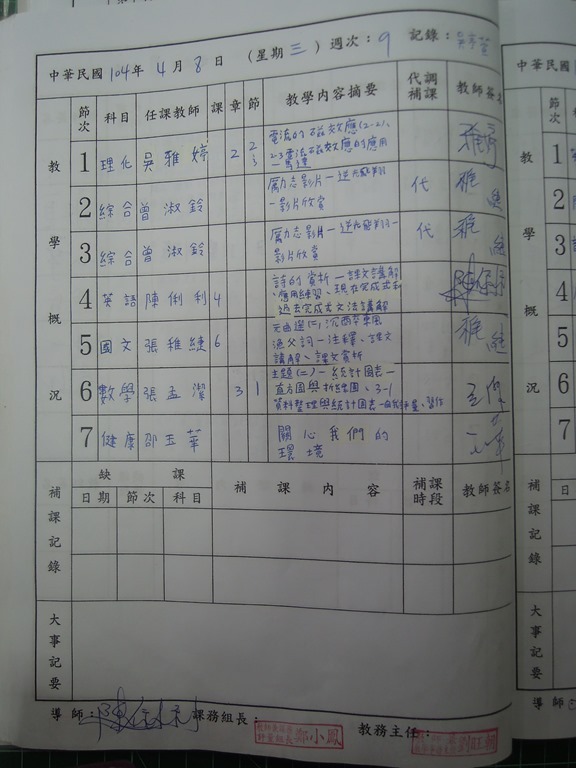 中華民國104年4月8日 (星期三) 週次:9 記錄:
節次 科目 任課教師 課 章 節 教學內容摘要 代調補課 教師簽名
教學概況
1 理化 吳雅婷 2 2 3 電流的磁效應(2-2)、
2-3電流磁效應的應用
2 綜合 曾淑鈴 勵志影片－逆 代
－影片欣賞
3 綜合 曾淑鈴 勵志影片－逆 代
影片欣賞
4 英語 陳俐利 4 詩的賞析－課文講解
、應用練習、現在完成式和
過去完成式文法講解
5 國文 張稚緁 6 元曲選(二)沉醉東風
漁父詞－注釋、課文
講解、課文賞析
6 數學 張孟潔 3 1 主題(二)－統計圖表－
直方圖與折線圖、3-1
資料整理與統計圖表 習作
7 健康 邵玉華 關心我們的
環境
補課記錄
缺課 補課內容 補課時段 教師簽名
日期 節次 科目
大事記要
導師: 課務組長: 鄭小鳳 教務主任: